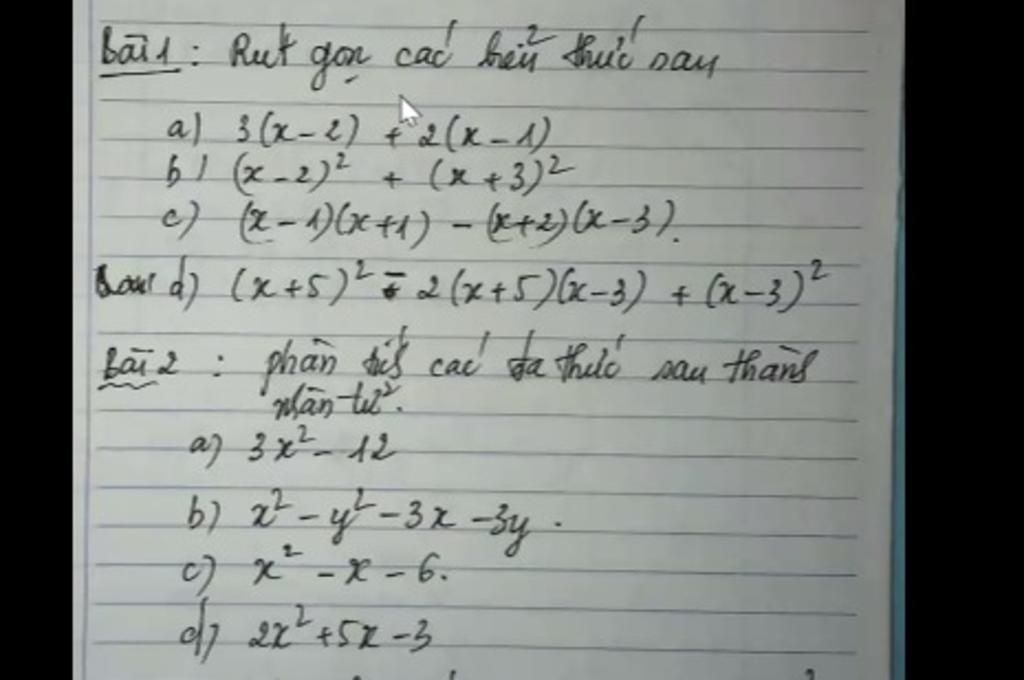 Bài 1 : Rút gọn các biểu thức sau
a) 3(x-2) + 2(x-1)
b) (x-2)² + (x+3)²
c) (x-1)(x+1) - (x+2)(x-3).
d) (x+5)² - 2(x+5)(x-3) + (x-3)²
Bài 2 : phân tích các đa thức sau thành
nhân tử.
a) 3x² - 12
b) x² - y² - 3x - 3y.
c) x² - x - 6.
d) 2x² + 5x - 3